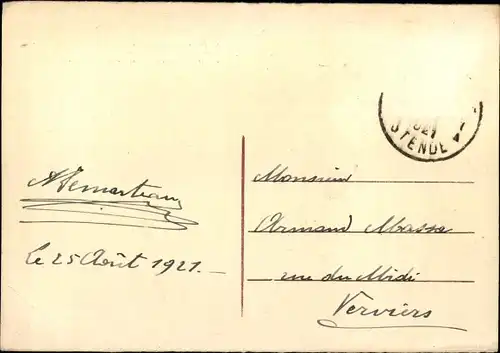 ADemarteau
Le 25 Août 1921.
921
OSTENDE
Monsieur
Armand Massa
rue du Midi
Verviers